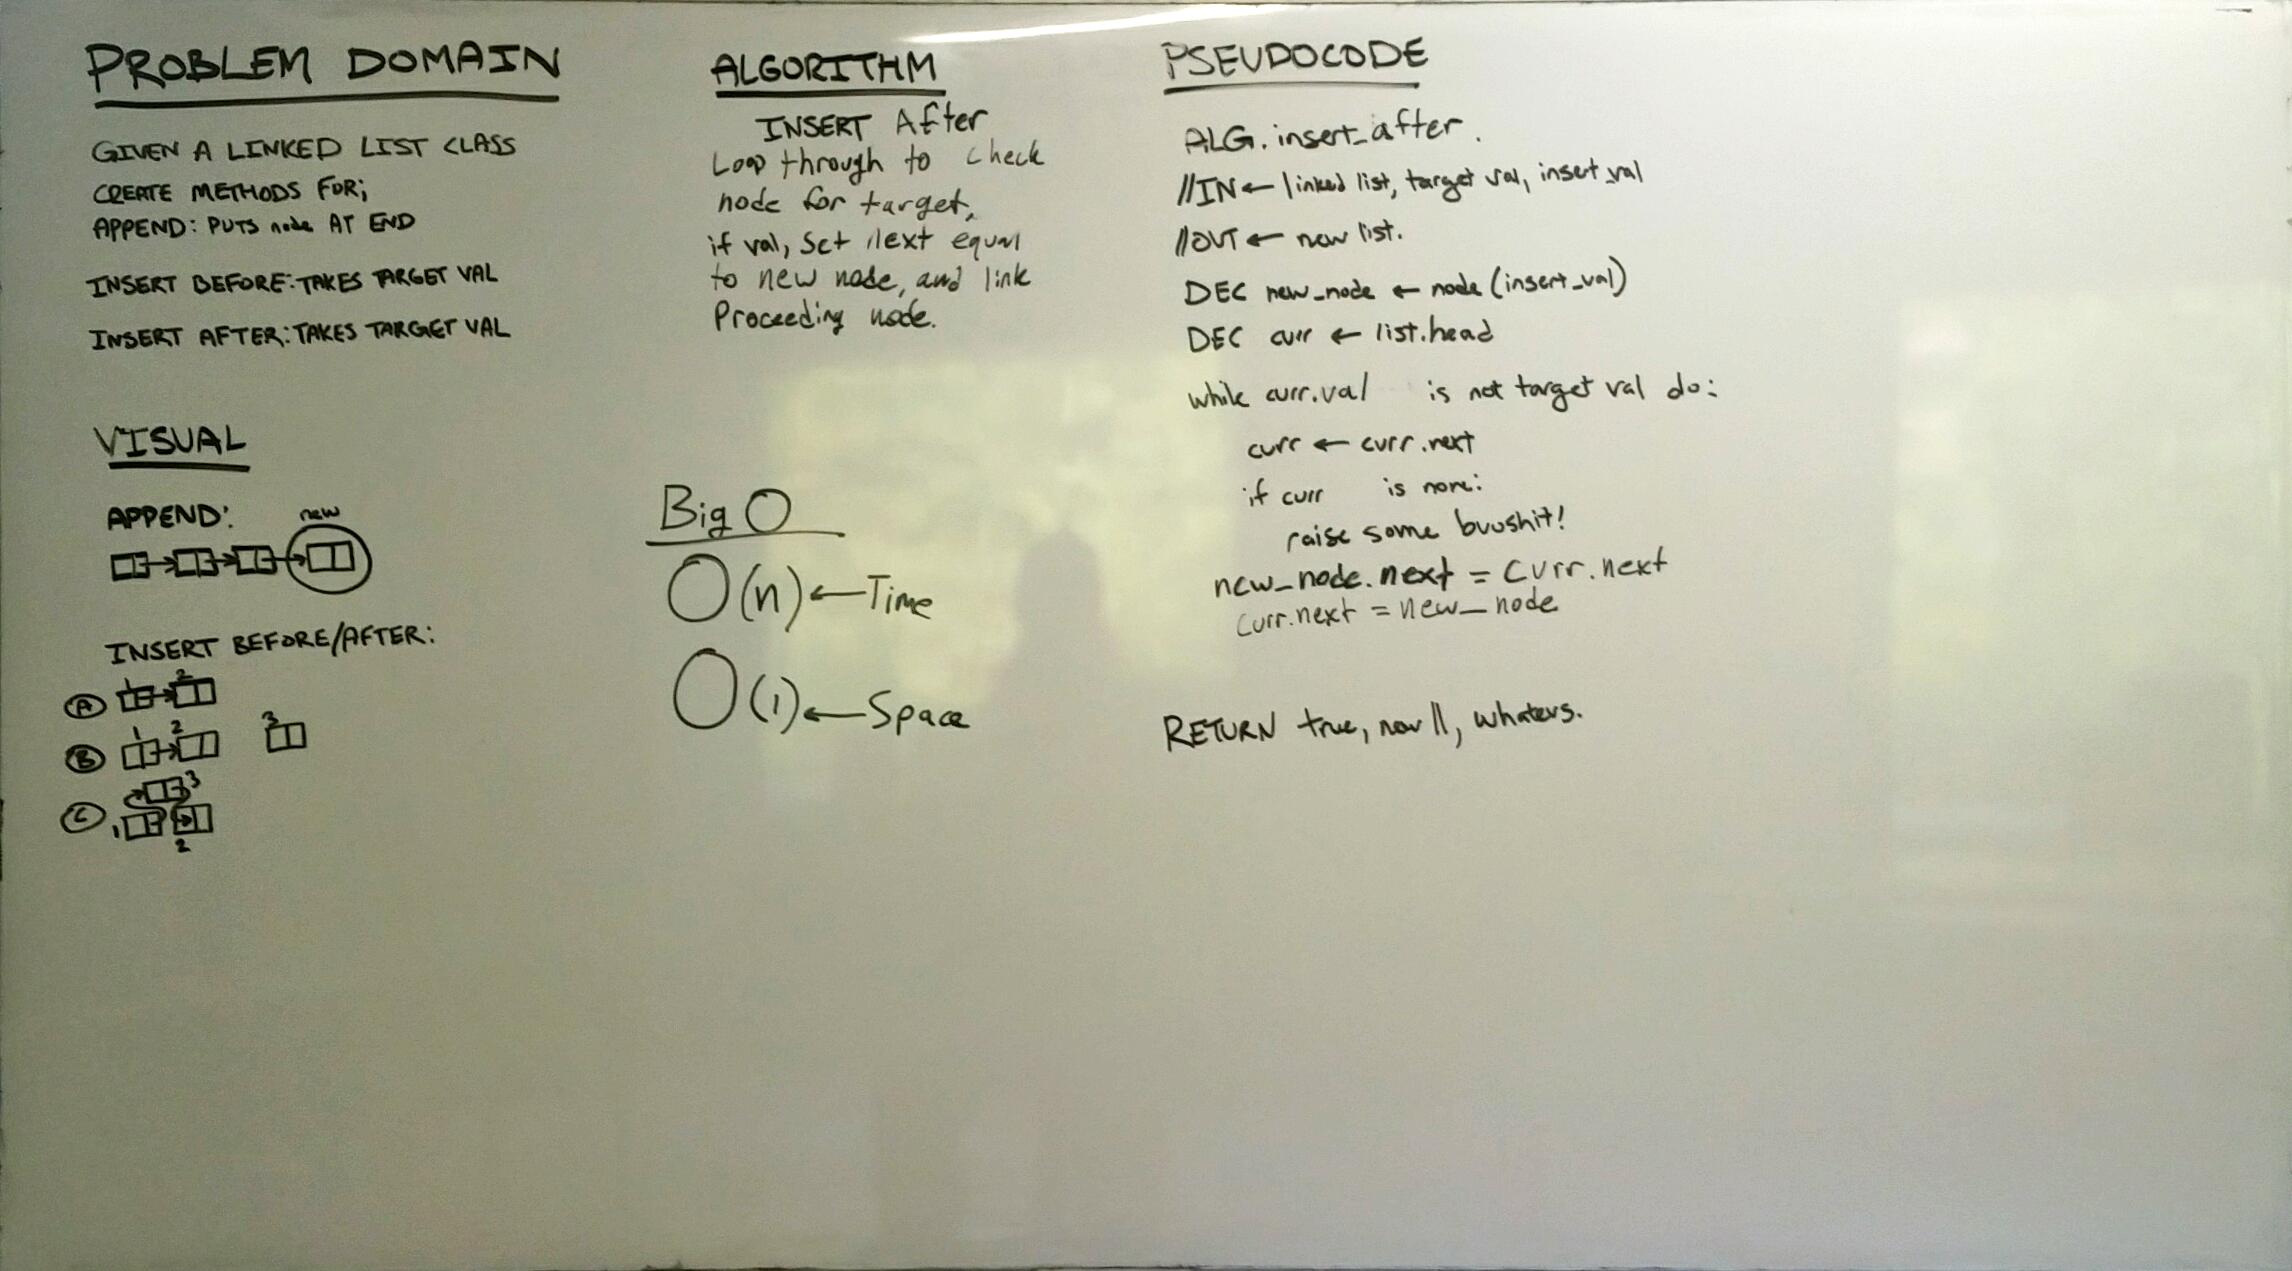 PROBLEM DOMAIN
GIVEN A LINKED LIST CLASS
CREATE METHODS FOR;
APPEND: PUTS node AT END
INSERT BEFORE: TAKES TARGET VAL
INSERT AFTER: TAKES TARGET VAL
VISUAL
APPEND:
new
INSERT BEFORE/AFTER:
A 1 2
B 1 2 3
C 3
1
2
ALGORITHM
INSERT After
Loop through to check
node for target,
if val, set next equal
to new node, and link
Proceeding node.
Big O
O(n) ← Time
O(1) ← Space
PSEUDOCODE
ALG. insert_after.
//IN ← linked list, target val, insert_val
//OUT ← new list.
DEC new_node ← node (insert_val)
DEC curr ← list.head
while curr.val is not target val do:
curr ← curr.next
if curr is none:
raise some buushit!
new_node.next = curr.next
curr.next = new_node
RETURN true, null, whatevs.